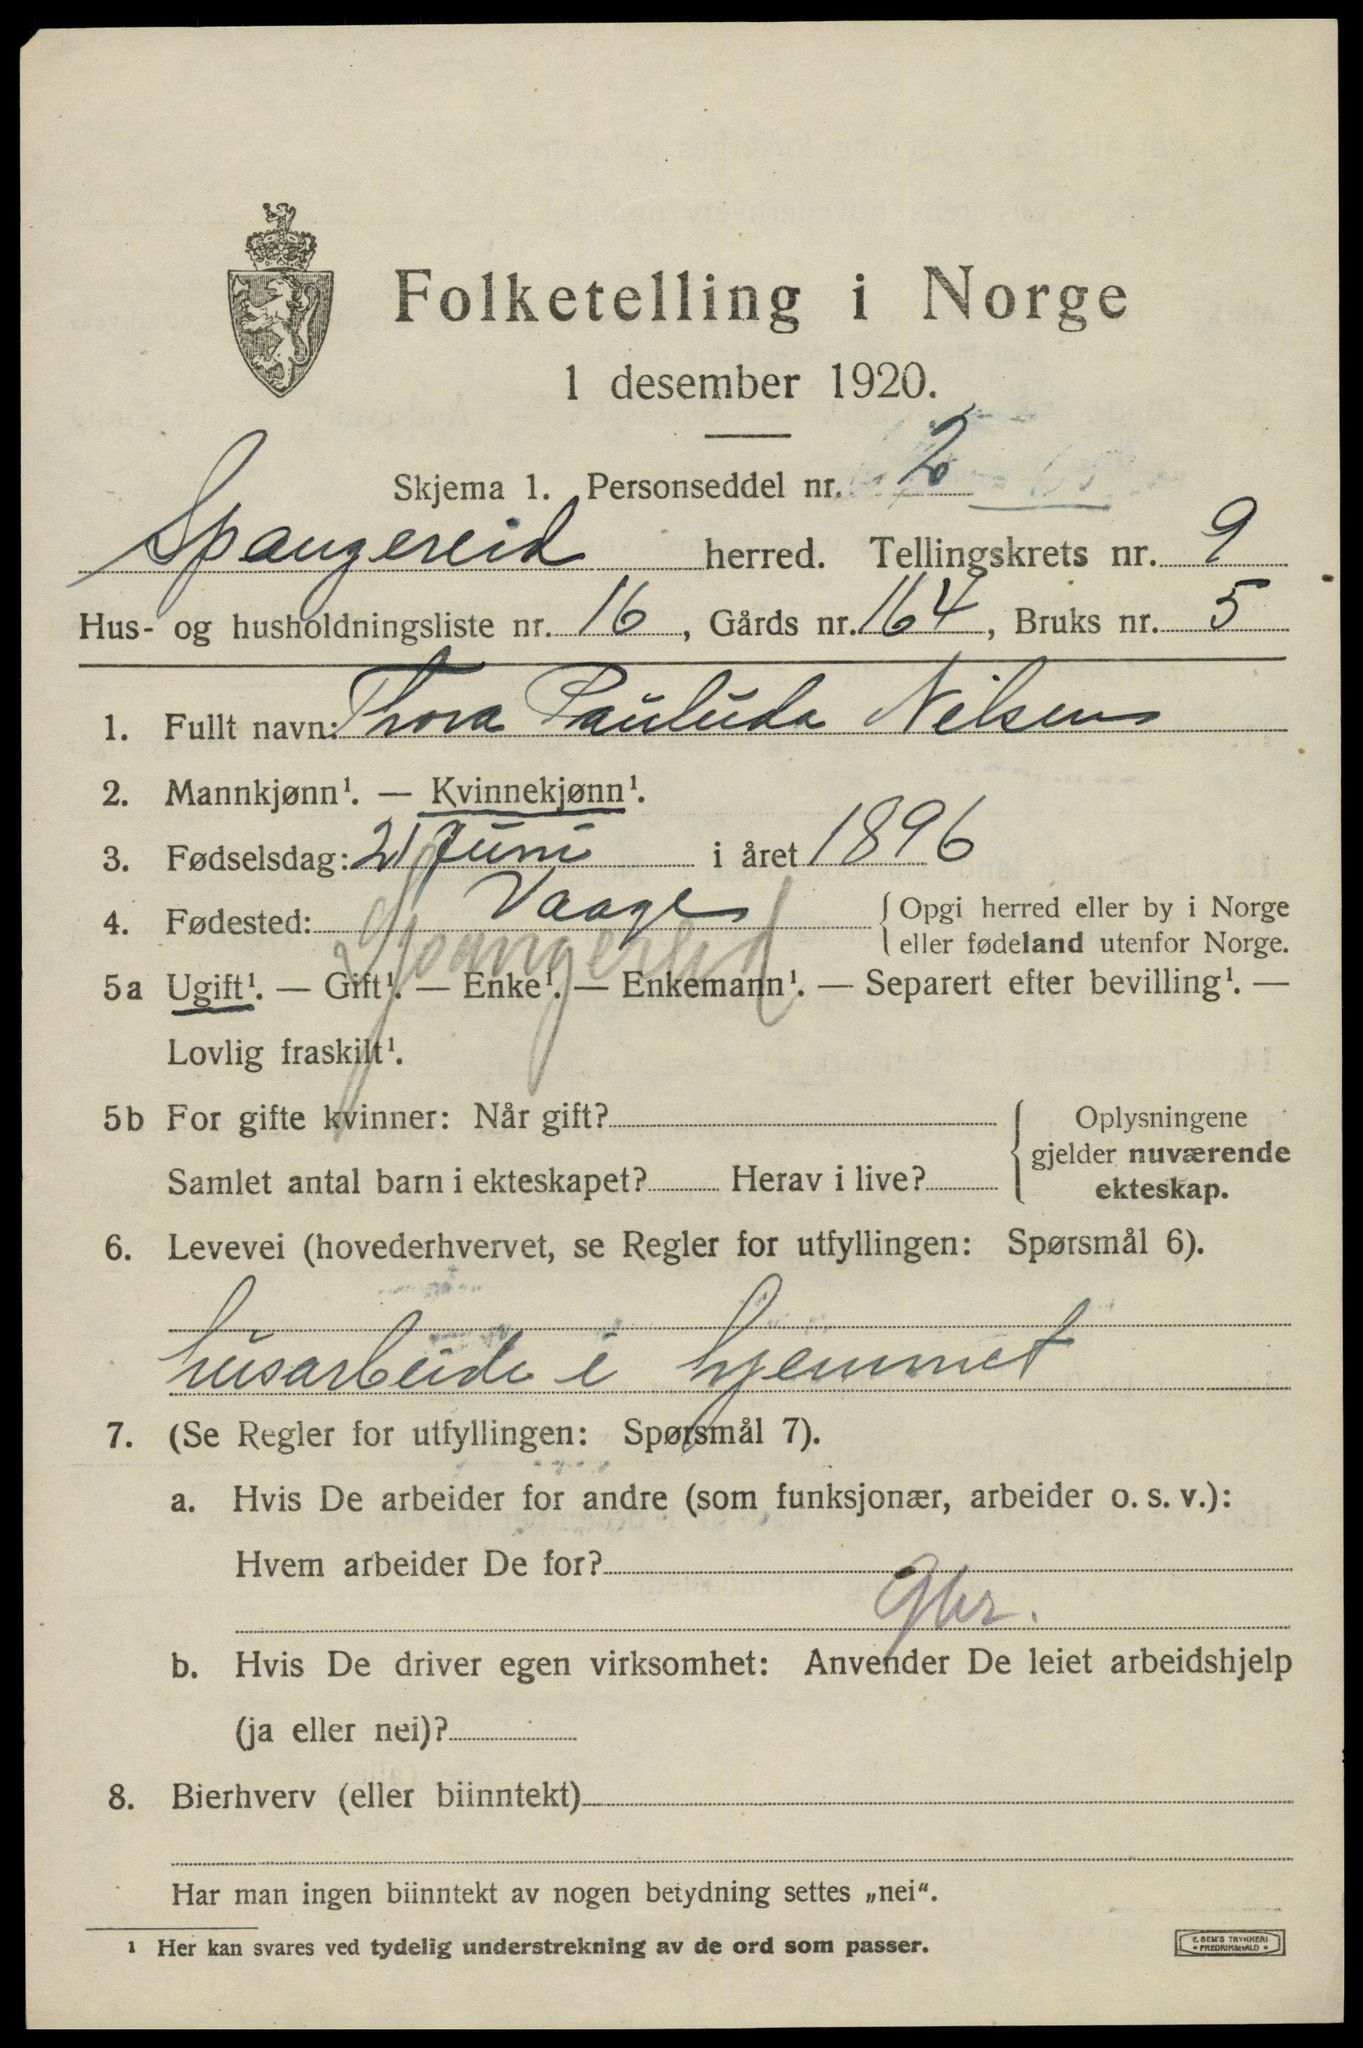 Folketelling i Norge
1 desember 1920.
Skjema 1. Personseddel nr. 2
Spangereid herred. Tellingskrets nr. 9
Hus- og husholdningsliste nr. 16, Gårds nr. 164, Bruks nr. 5
1. Fullt navn: Thora Pauluda Nilsen
2. Mannkjønn¹. — Kvinnekjønn¹.
3. Fødselsdag: 21 Juni i året 1896
4. Fødested: Vaage { Opgi herred eller by i Norge
eller fødeland utenfor Norge.
Spangereid
5a Ugift¹. — Gift¹. — Enke¹. — Enkemann¹. — Separert efter bevilling¹. —
Lovlig fraskilt¹.
5b For gifte kvinner: Når gift? { Oplysningene
gjelder nuværende
Samlet antal barn i ekteskapet? Herav i live? ekteskap.
6. Levevei (hovederhvervet, se Regler for utfyllingen: Spørsmål 6).
husarbeide i hjemmet
7. (Se Regler for utfyllingen: Spørsmål 7).
a. Hvis De arbeider for andre (som funksjonær, arbeider o. s. v.):
Hvem arbeider De for?
Gbr.
b. Hvis De driver egen virksomhet: Anvender De leiet arbeidshjelp
(ja eller nei)?
8. Bierhverv (eller biinntekt)
Har man ingen biinntekt av nogen betydning settes „nei“.
¹ Her kan svares ved tydelig understrekning av de ord som passer.
E. SEM'S TRYKKERI
• FREDRIKSHALD •